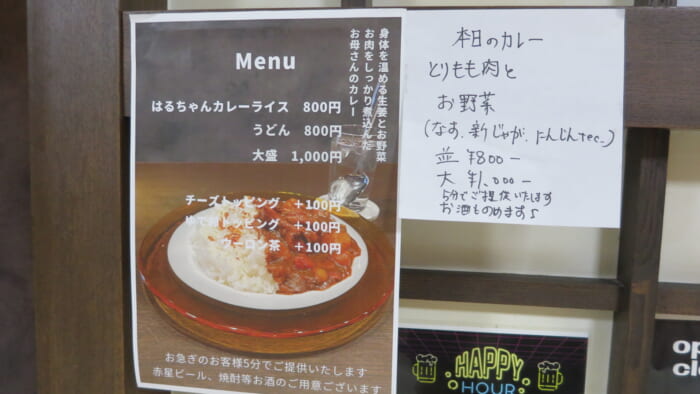 身体を温める生姜とお野菜
お肉をしっかり煮込んだ
お母さんのカレー
Menu
はるちゃんカレーライス 800円
うどん 800円
大盛 1,000円
チーズトッピング +100円
トッピング +100円
ウーロン茶 +100円
お急ぎのお客様5分でご提供いたします
赤星ビール、焼酎等お酒のご用意ございます
本日のカレー
とりもも肉と
お野菜
(なす、新じゃが、にんじんtec..)
並 ¥800-
大 ¥1,000-
5分でご提供いたします
お酒ものめます♪
HAPPY
HOUR
op
clo